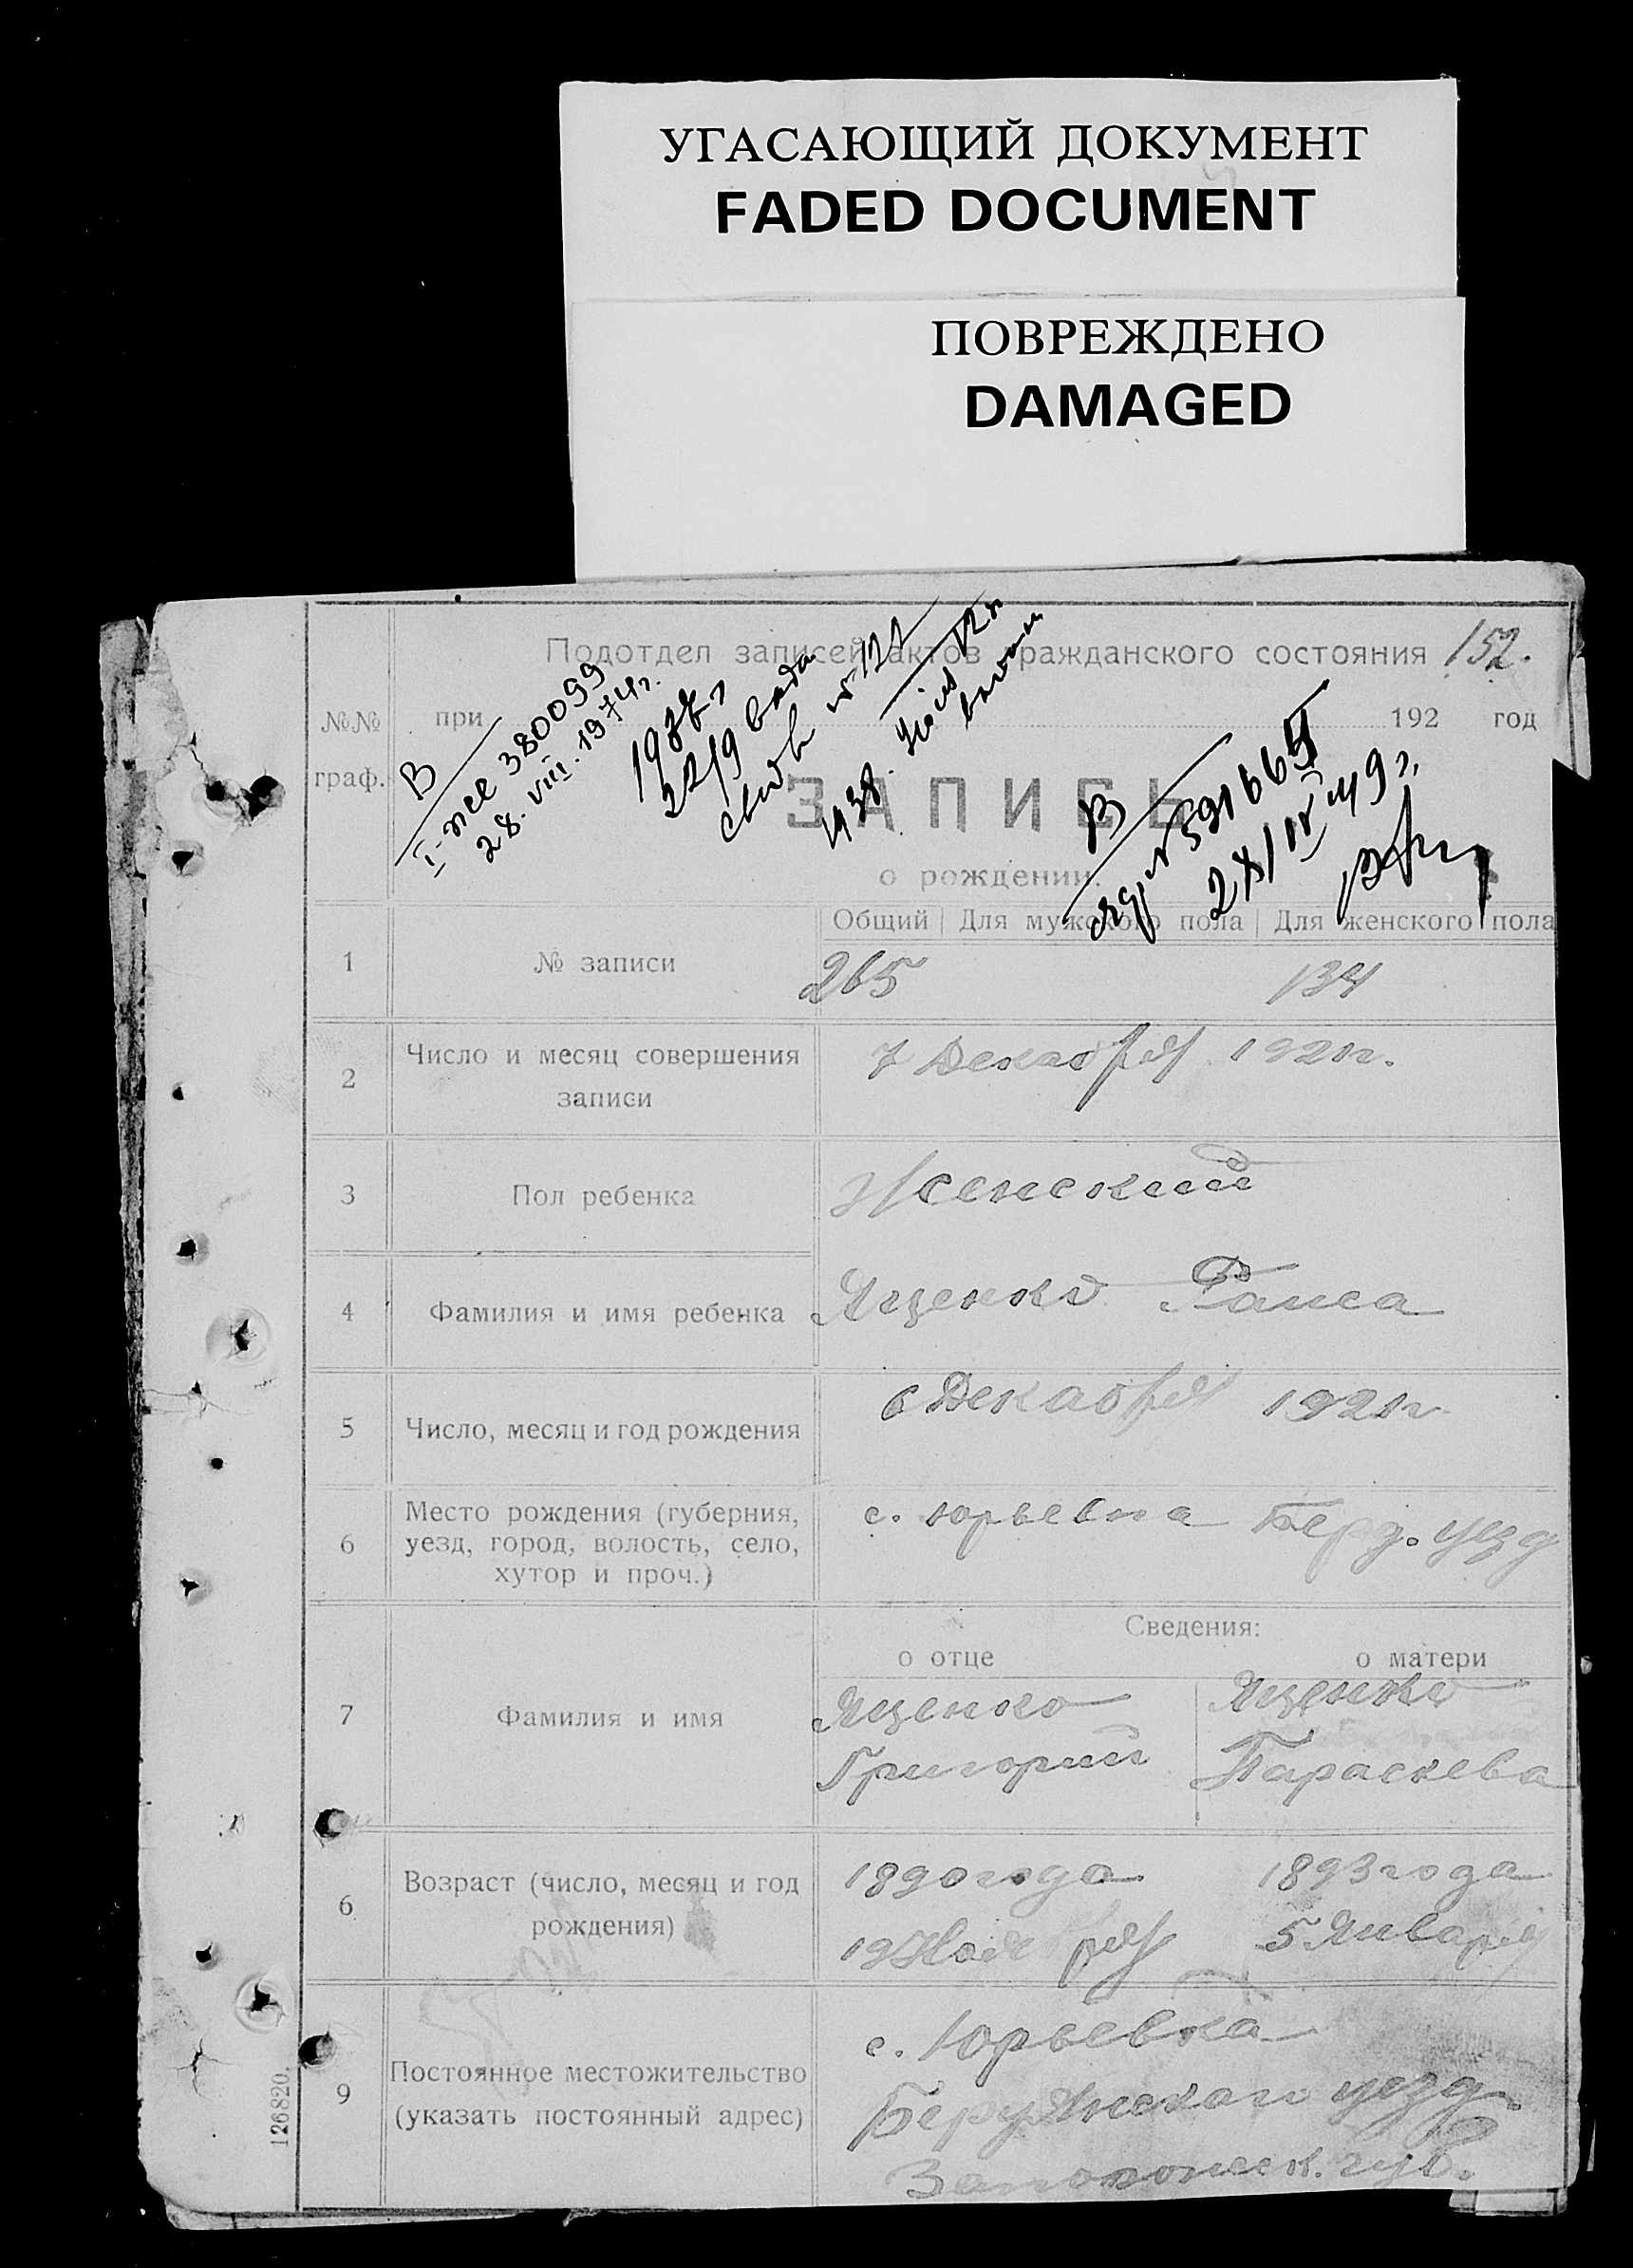 УГАСАЮЩИЙ ДОКУМЕНТ
FADED DOCUMENT
ПОВРЕЖДЕНО
DAMAGED
Подотдел записей актов гражданского состояния 152.
№№ граф.
при 192 год
В
I-ЖС 380099
28.VIII.1974г.
В
ЗАПИСЬ
о рождении.
Общий Для мужского пола Для женского пола
1 № записи 265 134
2 Число и месяц совершения записи 7 Декабря 1921г.
3 Пол ребенка Женский
4 Фамилия и имя ребенка Яценко Раиса
5 Число, месяц и год рождения 6 Декабря 1921г.
6 Место рождения (губерния, уезд, город, волость, село, хутор и проч.) с. Юрьевка Берд. уезд
Сведения:
о отце о матери
7 Фамилия и имя
Яценко Яценко
Григорий Параскева
6 Возраст (число, месяц и год рождения)
1890 года 1893 года
19 Ноября 5 Января
9 Постоянное местожительство (указать постоянный адрес)
с. Юрьевка
уезд.
губ.
126820.